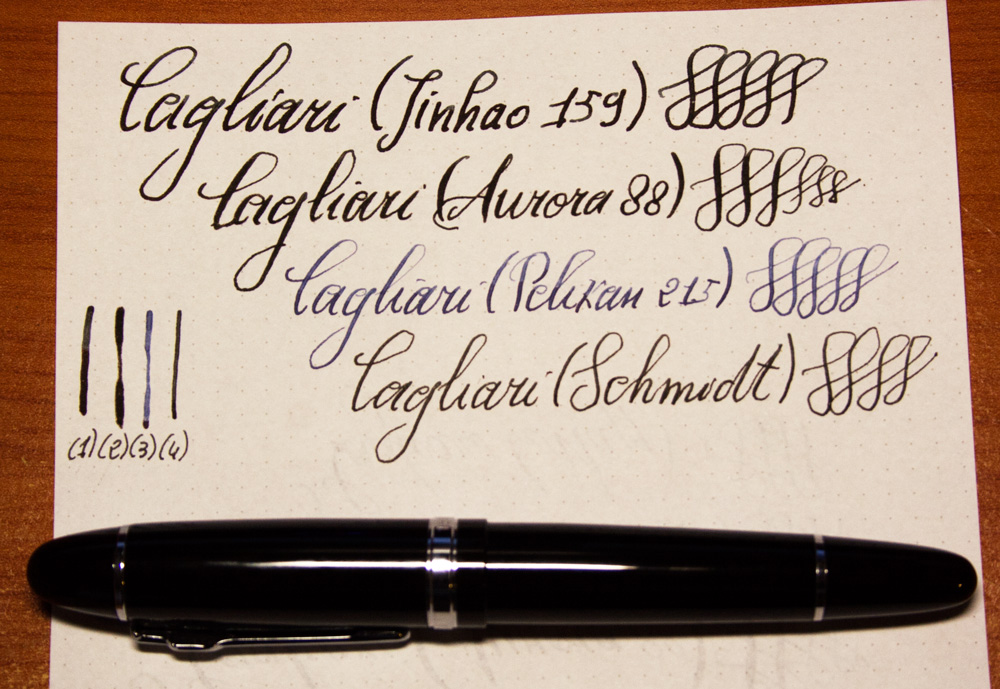 Cagliari (Jinhao 159)
Cagliari (Aurora 88)
Cagliari (Pelikan 215)
Cagliari (Schmidt)
(1) (2) (3) (4)